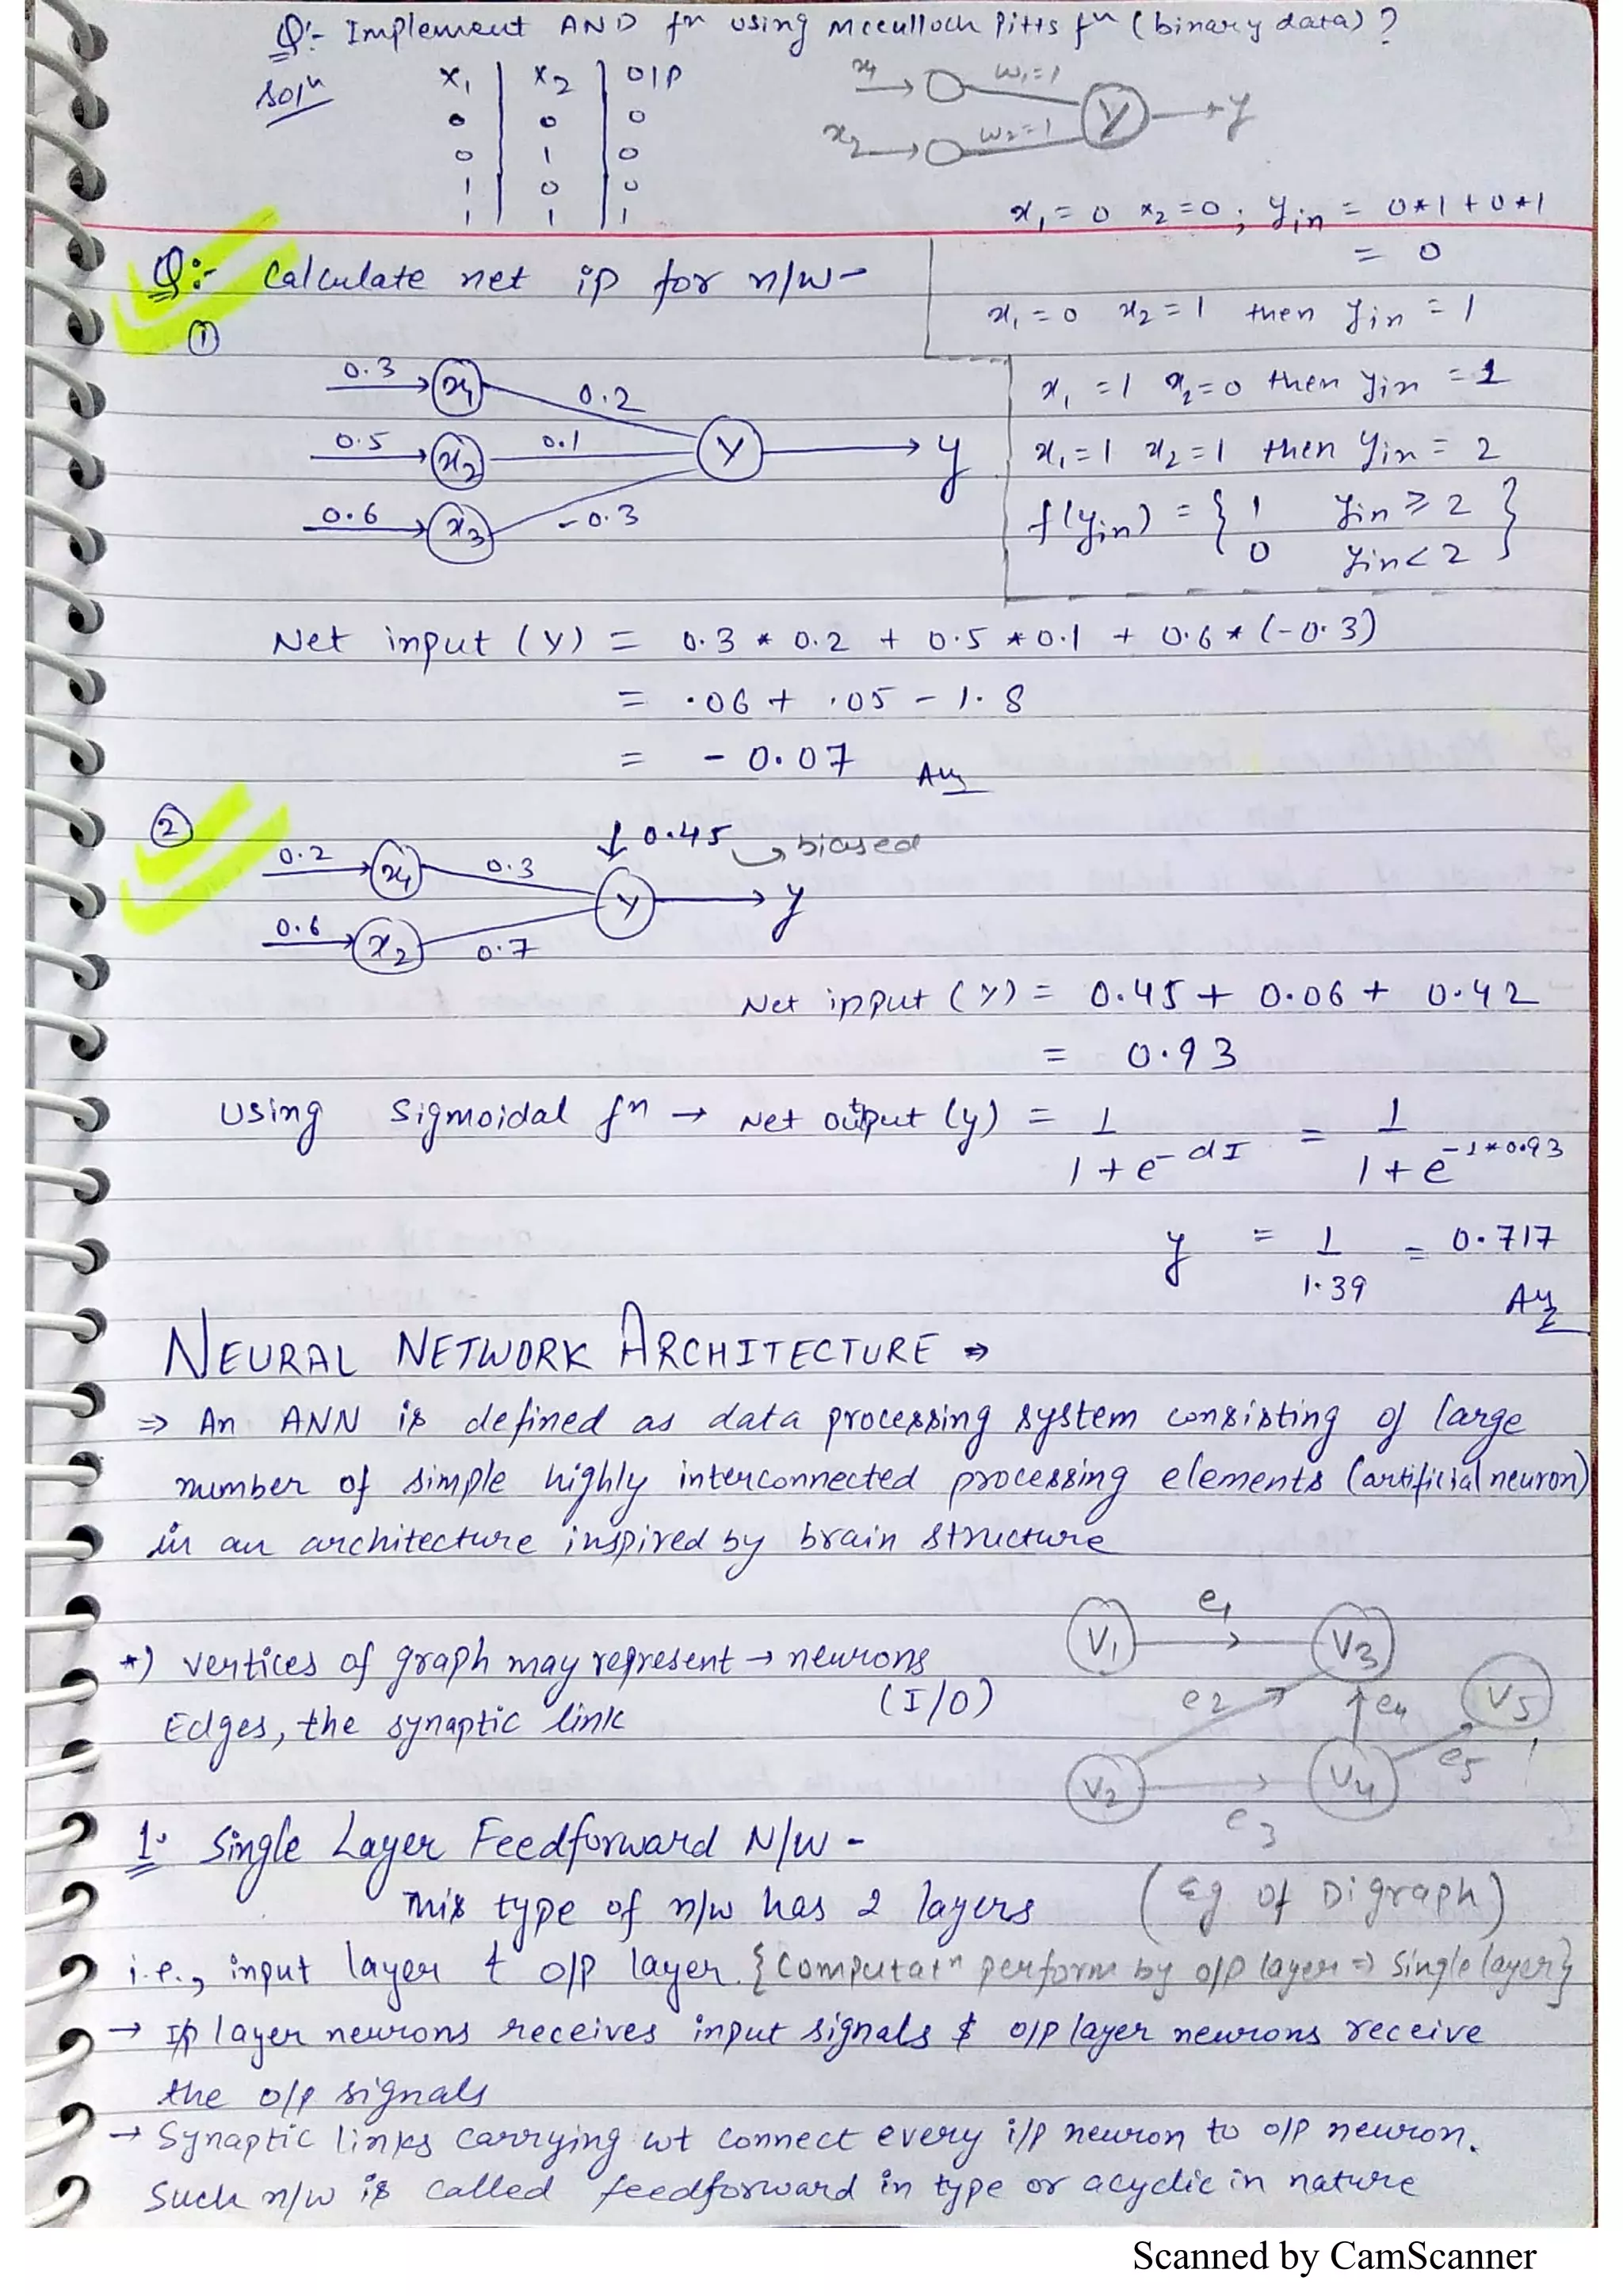 Q:- Implement AND fn using Mcculloch Pitts fn (binary data) ?
Soln
x1 x2 O|P
0 0 0
0 1 0
1 0 0
1 1 1
x1 w1=1
x2 w2=1
Y y
x1 = 0 x2 = 0 ; yin = 0*1 + 0*1
= 0
x1 = 0 x2 = 1 then yin = 1
x1 = 1 x2 = 0 then yin = 1
x1 = 1 x2 = 1 then yin = 2
f(yin) = { 1 yin ≥ 2 }
0 yin < 2
Q:- Calculate net ip for n/w -
①
0.3 x1 0.2
0.5 x2 0.1 Y y
0.6 x3 -0.3
Net input (Y) = 0.3 * 0.2 + 0.5 * 0.1 + 0.6 * (-0.3)
= .06 + .05 - 1.8
= - 0.07 Ans
②
↓ 0.45 biased
0.2 x1 0.3
Y y
0.6 x2 0.7
Net input (Y) = 0.45 + 0.06 + 0.42
= 0.93
Using Sigmoidal fn → Net output (y) = 1 / 1 + e^-dI = 1 / 1 + e^-1*0.93
y = 1 / 1.39 = 0.717
Ans
NEURAL NETWORK ARCHITECTURE ⇒
⇒ An ANN is defined as data processing system consisting of large
number of simple highly interconnected processing elements (artificial neuron)
in an architecture inspired by brain structure
*) vertices of graph may represent → neurons
(I/O)
Edges, the synaptic link
V1 e1 V3
e2 e4 V5
V2 e3 V4 e5
(Eg of Digraph)
1. Single Layer Feedforward N/W -
This type of n/w has 2 layers
i.e., input layer & o/p layer. {Computatn perform by o/p layer ⇒ Single layer}
→ I/p layer neurons receives input signals & o/p layer neurons receive
the o/p signals
→ Synaptic links carrying wt connect every i/p neuron to o/p neuron.
Such n/w is called feedforward in type or acyclic in nature
Scanned by CamScanner